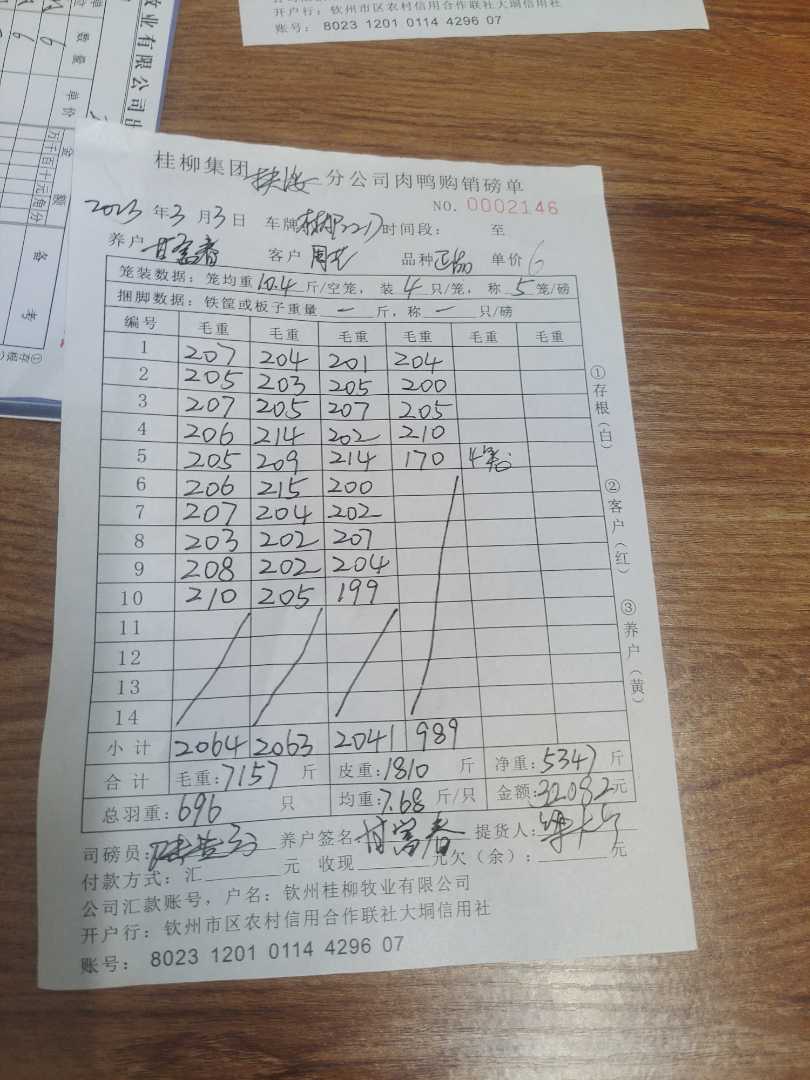 开户行：钦州市区农村信用合作联社大垌信用社
账号： 8023 1201 0114 4296 07
牧业有限公司出
数量
单价
金额
万千百十元角分
备考
①存根
桂柳集团 分公司肉鸭购销磅单
NO. 0002146
2023 年 3 月 3 日 车牌 时间段： 至
养户 甘富春 客户 品种 正品 单价 6
笼装数据：笼均重 10.4 斤/空笼，装 4 只/笼，称 5 笼/磅
捆脚数据：铁筐或板子重量 — 斤，称 — 只/磅
编号 毛重 毛重 毛重 毛重 毛重 毛重
1 207 204 201 204
2 205 203 205 200
3 207 205 207 205
4 206 214 202 210
5 205 209 214 170 4笼
6 206 215 200
7 207 204 202
8 203 202 207
9 208 202 204
10 210 205 199
11
12
13
14
小计 2064 2063 2041 989
合计 毛重：7157 斤 皮重：1810 斤 净重：5347 斤
总羽重：696 只 均重：7.68 斤/只 金额：32082元
司磅员： 养户签名 甘富春 提货人：
付款方式：汇 元 收现 元欠（余）： 元
公司汇款账号，户名：钦州桂柳牧业有限公司
开户行：钦州市区农村信用合作联社大垌信用社
账号： 8023 1201 0114 4296 07
①存根（白）
②客户（红）
③养户（黄）